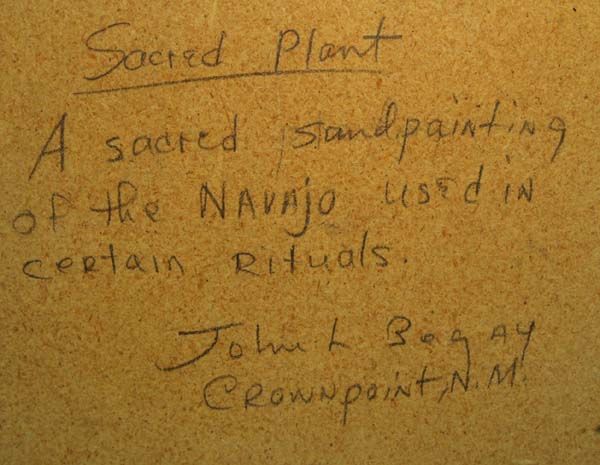 Sacred Plant
A sacred sandpainting
of the NAVAJO used in
certain Rituals.
John L Begay
CROWNpoint, N.M.